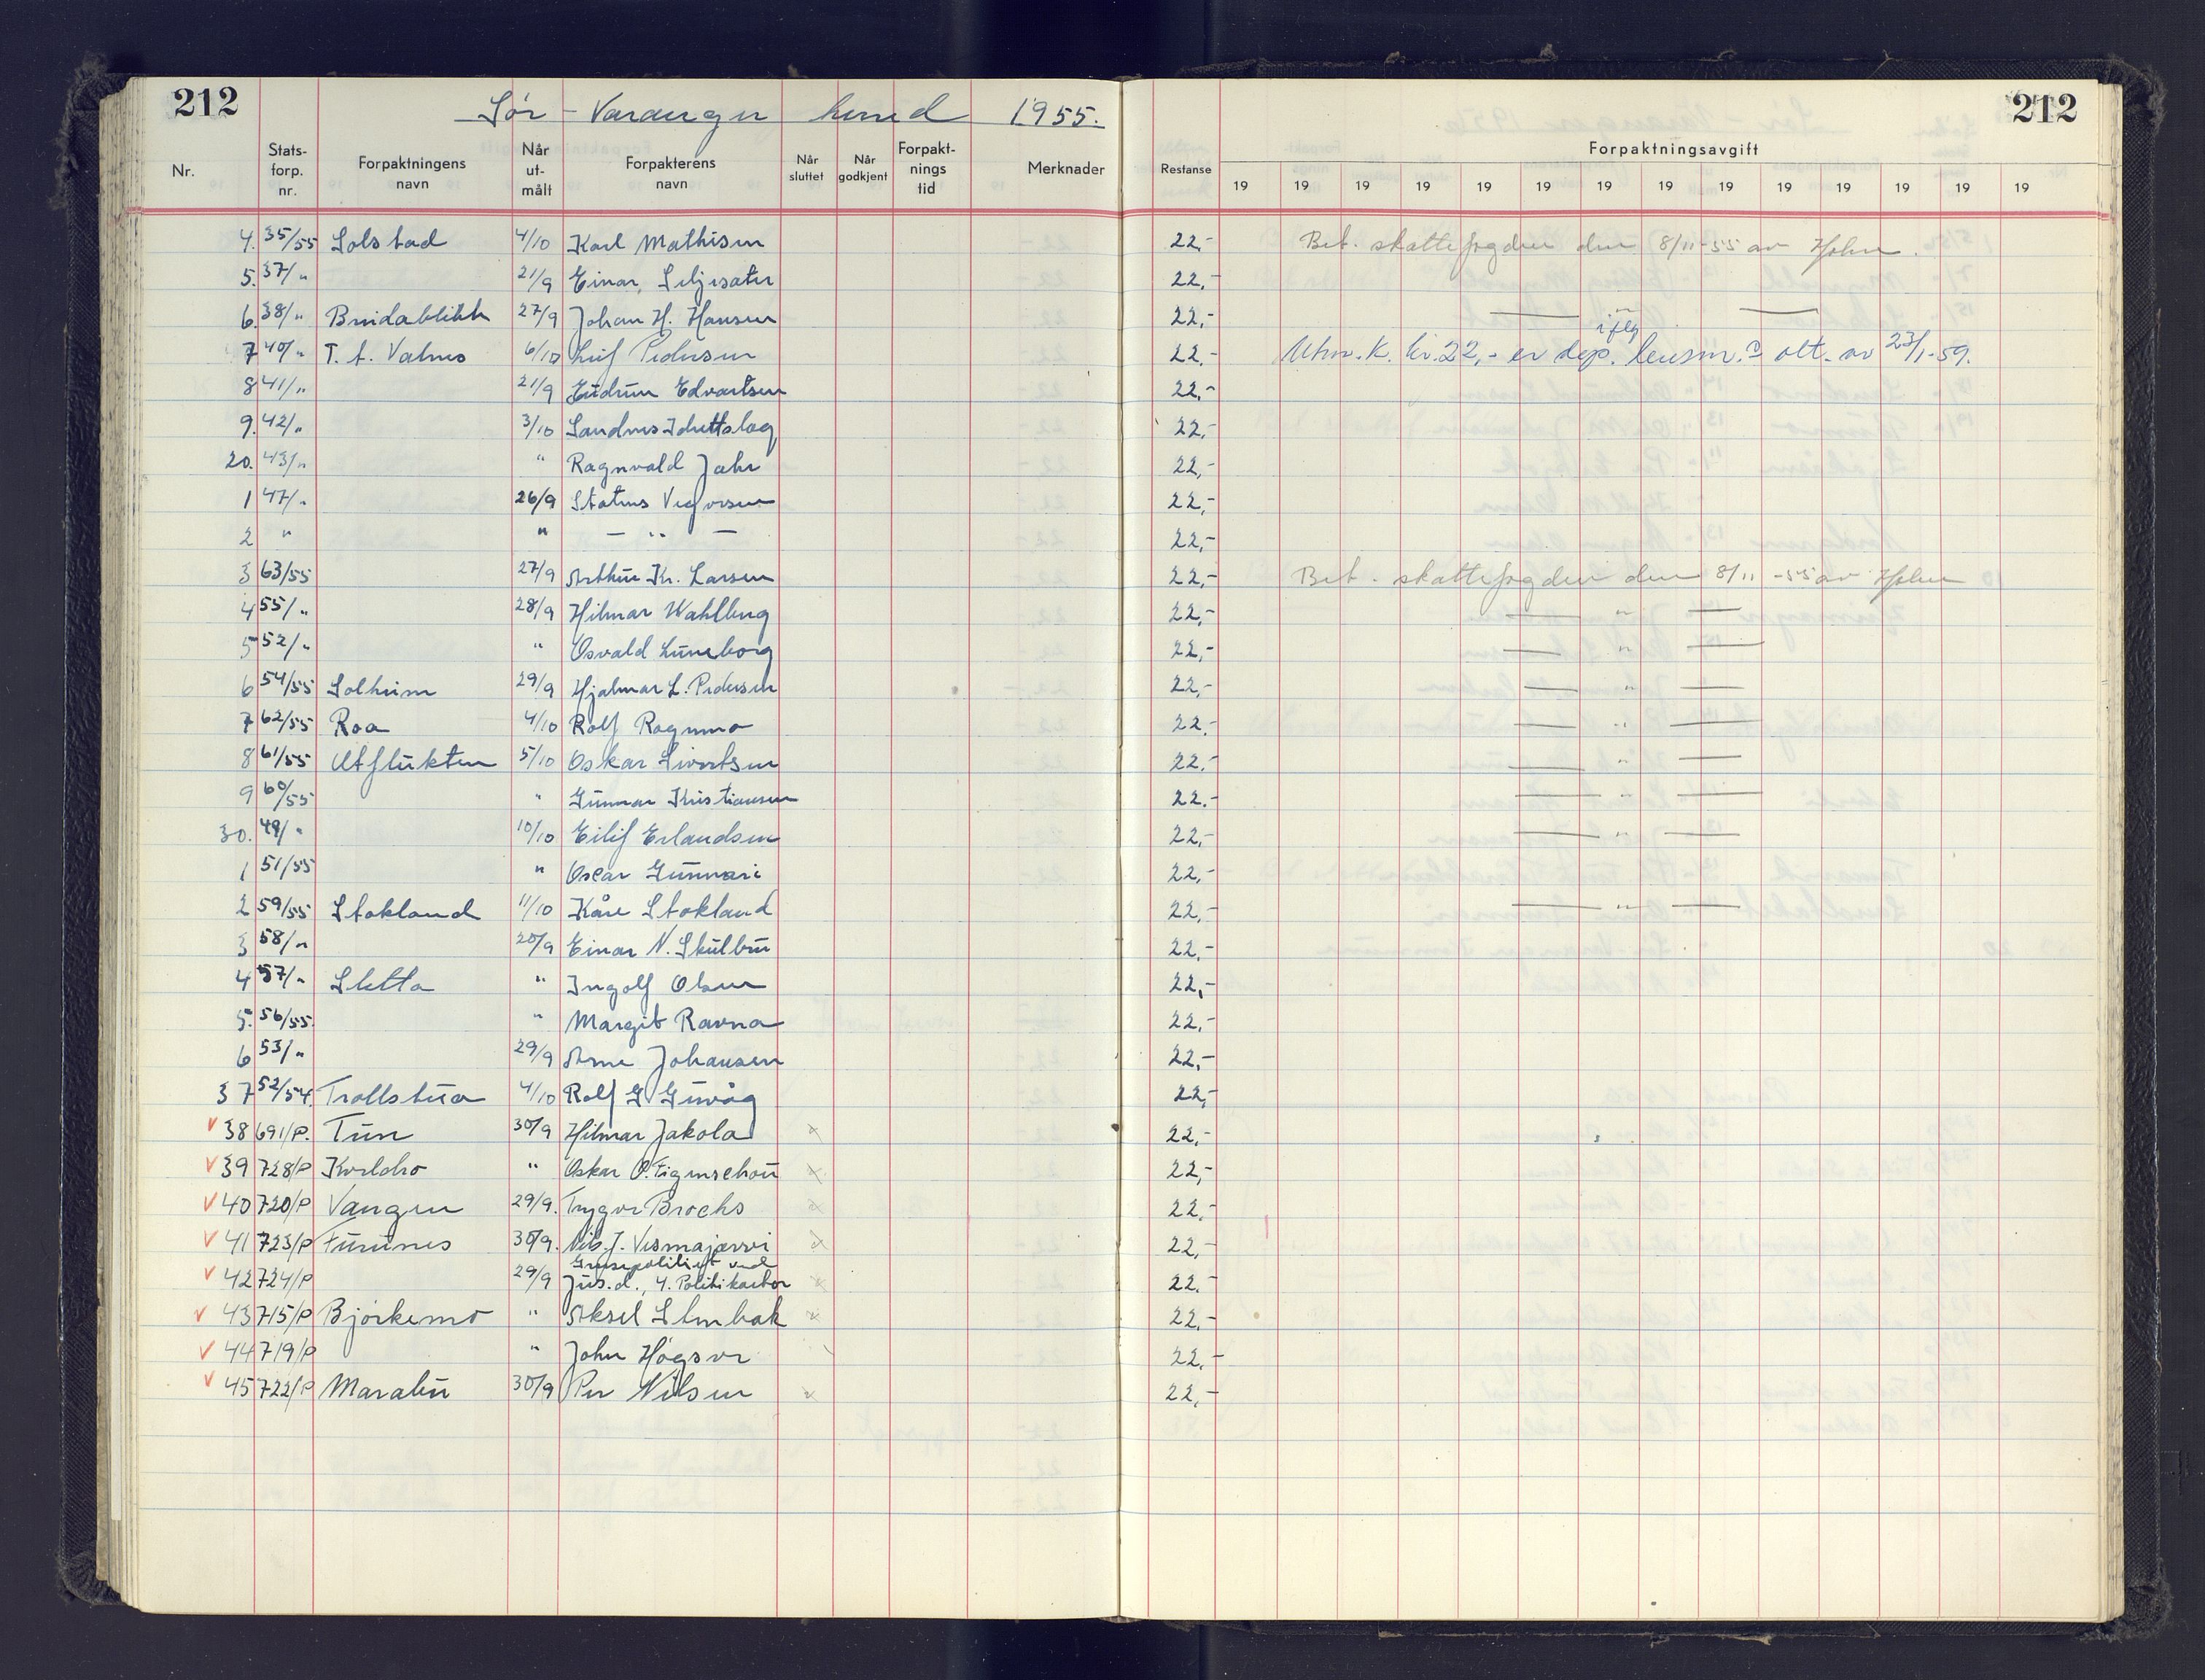 212 Sør-Varanger herred 1955. 212
Forpaktningsavgift
Nr. Stats-forp. nr. Forpaktningens navn Når ut-målt Forpakterens navn Når sluttet Når godkjent Forpakt-nings tid Merknader Restanse 19 19 19 19 19 19 19 19 19 19 19 19 19 19
4. 35/55 Solstad 4/10 Karl Mathisen 22,- Bet. skattefogden den 8/11-55 av
5. 37/" 21/9 Einar Seljesæter 22,-
6. 38/" Breidablikk 27/9 Johan H. Hansen 22,- — " —
7 40/" T. t. Valnes 6/10 Leif Pedersen 22.- Utm.k. kr. 22,- er dep. iflg lensm.s att. av 23/1-59.
8 41/" 21/9 Gudrun Edvartsen 22,-
9. 42/" 3/10 Sandnes Idrettslag 22,-
20. 43/" " Ragnvald Jahr 22,-
1 47/" 26/9 Statens Vegvesen 22,-
2 " " — " — 22,-
3 63/55 27/9 Arthur Kr. Larsen 22,- Bet. skattefogden den 8/11-55 av
4 55/" 28/9 Hilmar Wahlberg 22,- — " —
5 52/" " Osvald Luneborg 22,- — " —
6 54/55 Solheim 29/9 Hjalmar L. Pedersen 22,- — " —
7 62/55 Roa 4/10 Rolf Ragnmo 22.- — " —
8 61/55 Utflukten 5/10 Oskar Sivertsen 22.- — " —
9 60/55 " Gunnar Kristiansen 22.- — " —
30. 49/" 10/10 Eilif Erlandsen 22,- — " —
1 51/55 " Oscar Gunnari 22,-
2 59/55 Stokland 11/10 Kåre Stokland 22,- — " —
3 58/" 20/9 Einar N. Skulbru 22,-
4 57/" Sletta " Ingolf Olsen 22,-
5. 56/55. " Margit Ravna 22,-
6 53/" 29/9 Arne Johansen 22,-
37 52/54. Trollstua 4/10 Rolf G. Guvåg 22,-
✓ 38 691/P. Tun 30/9 Hilmar Jakola x 22,-
✓ 39 728/P Kveldro " Oskar O. Figenschou x 22,-
✓ 40 720/P Vangen 29/9. Trygve Brochs x 22,-
✓ 41 723/P Furunes 30/9. Nils J. Vismajærvi x 22,-
✓ 42 724/P 29/9 Grensepolitiet ved Jus.d., 4. Politikantor x 22.-
✓ 43 715/P Bjørkemo " Aksel Stenbak x 22,-
✓ 44 719/P " John Høgsve 22,-
✓ 45 722/P Marabu 30/9 Per Nilsen x 22,-